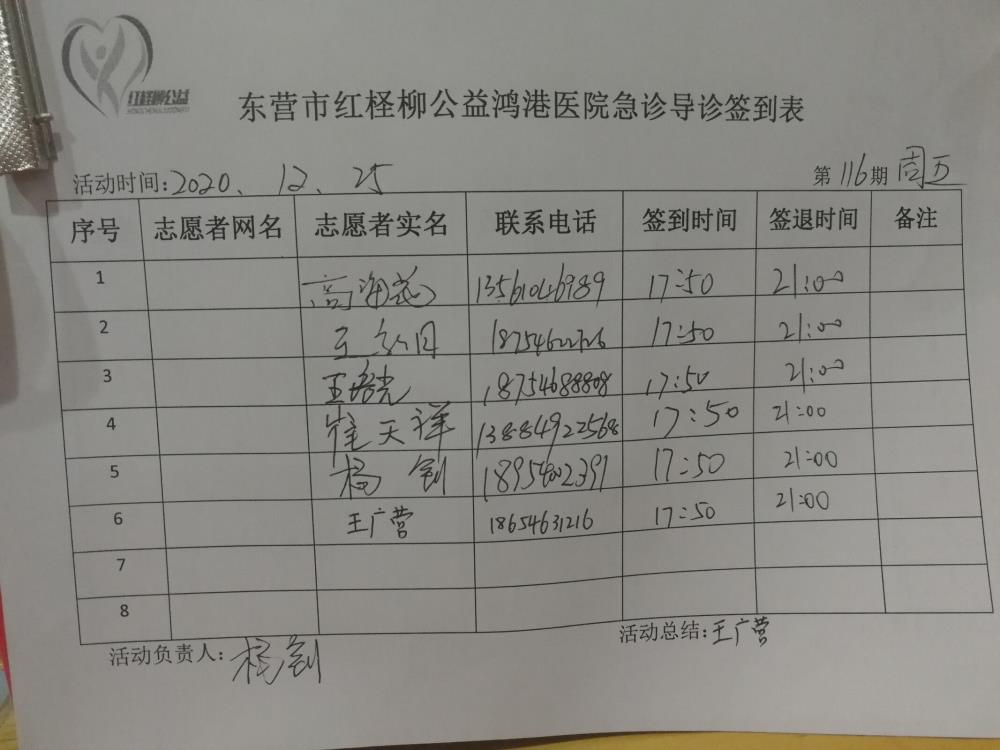 红柽柳公益
东营市红柽柳公益鸿港医院急诊导诊签到表
活动时间:2020.12.25 第116期 周五
序号 志愿者网名 志愿者实名 联系电话 签到时间 签退时间 备注
1 高海花 13561046989 17:50 21:00
2 17:50 21:00
3 王培光 18754688808 17:50 21:00
4 崔天祥 13884922568 17:50 21:00
5 杨剑 17:50 21:00
6 王广营 18654631216 17:50 21:00
7
8
活动负责人:杨剑 活动总结:王广营